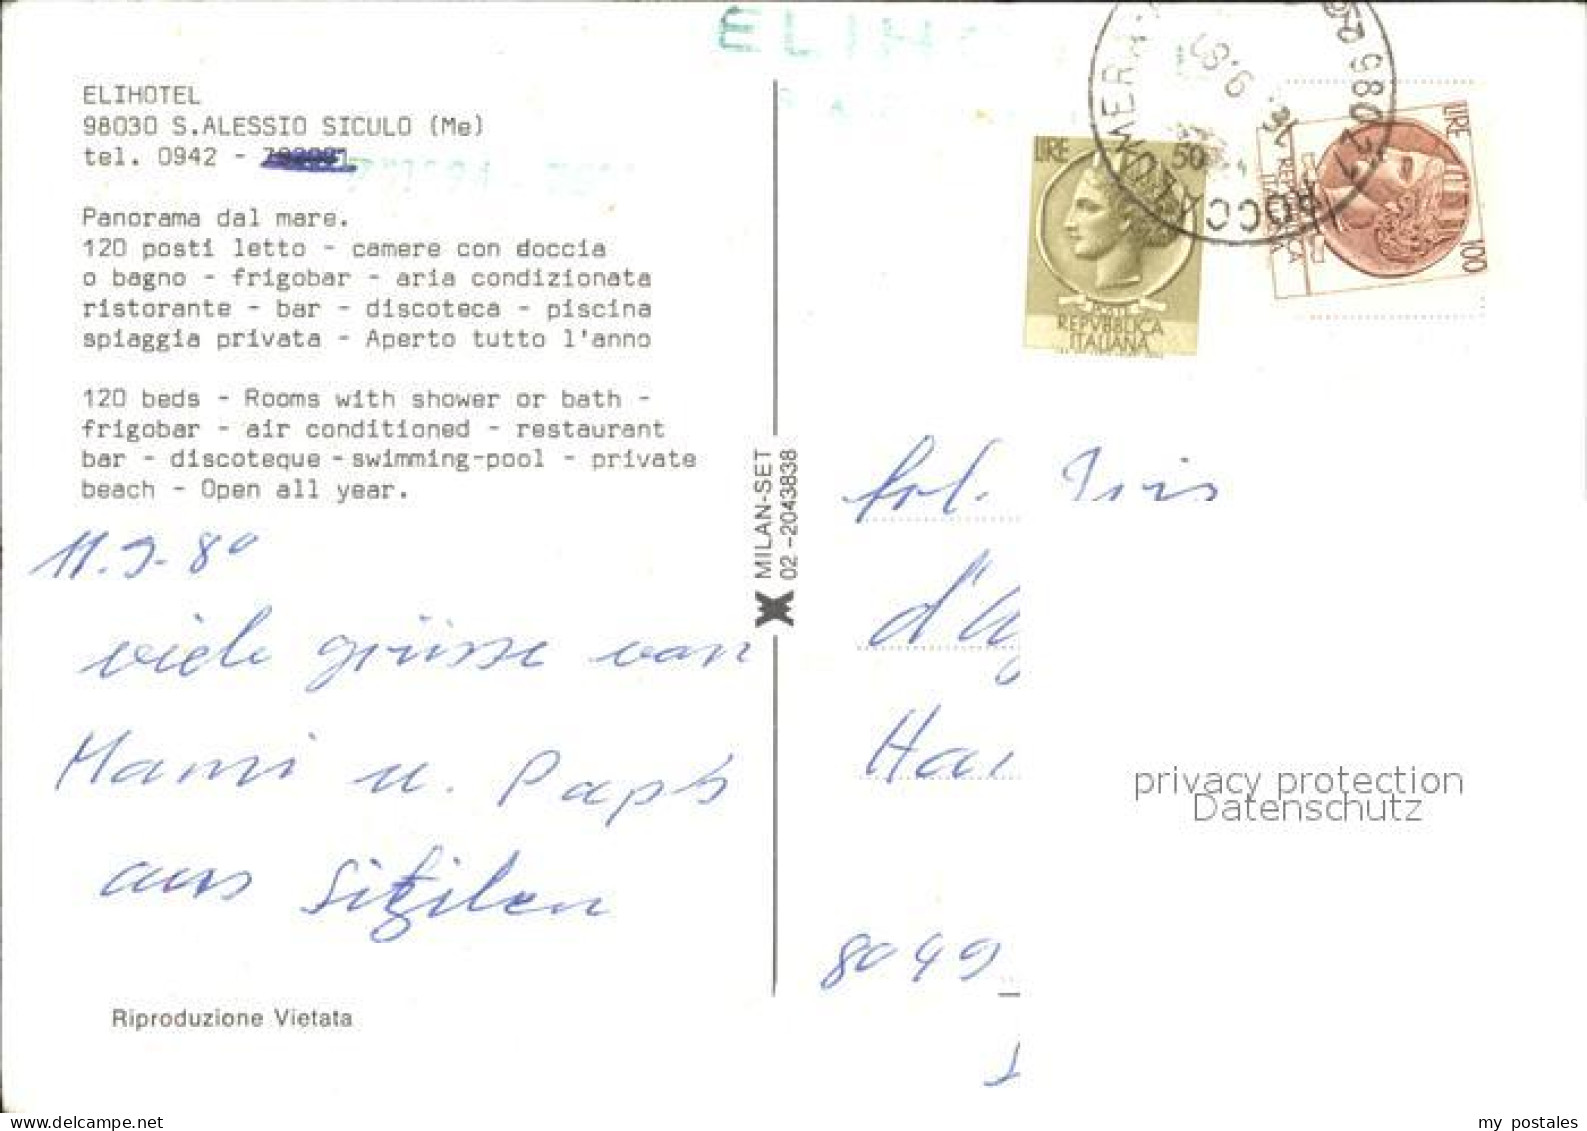 ELIHOTEL
ELIHOTEL
98030 S.ALESSIO SICULO (Me)
tel. 0942 -
Panorama dal mare.
120 posti letto - camere con doccia
o bagno - frigobar - aria condizionata
ristorante - bar - discoteca - piscina
spiaggia privata - Aperto tutto l'anno
120 beds - Rooms with shower or bath -
frigobar - air conditioned - restaurant
bar - discoteque - swimming-pool - private
beach - Open all year.
11.9.80
viele grüsse von
Mami u. Paps
aus Sizilen
Riproduzione Vietata
MILAN-SET
02 - 2043838
LIRE 50
POSTE
REPVBBLICA
ITALIANA
LIRE 100
REPVBBLICA
ITALIANA
98027 ROCCALUMERA
Frl. Iris
d'A
Ha
8049
privacy protection
Datenschutz
my postales